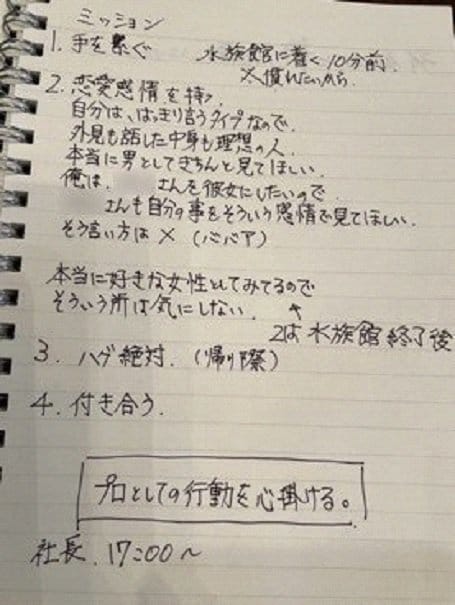 ミッション
1. 手を繋ぐ 水族館に着く10分前.
※慣れたいから.
2. 恋愛感情を持つ
自分は、はっきり言うタイプなので、
外見も話した中身も理想の人.
本当に男としてきちんと見てほしい.
俺は、 さんを彼女にしたいので、
さんも自分の事をそういう感情で見てほしい.
そう言い方は × (ババア)
本当に好きな女性としてみてるので
そういう所は気にしない.
2は 水族館 終了後
3. ハグ絶対. (帰り際)
4. 付き合う.
プロとしての行動を心掛ける。
社長. 17:00〜